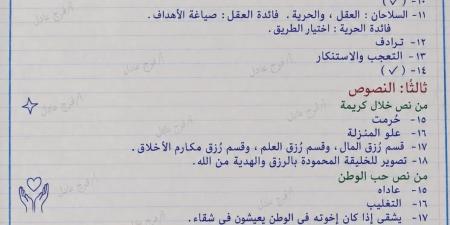 ١٠- ( ✓ )
١١- السلاحان : العقل ، والحرية . فائدة العقل : صياغة الأهداف .
فائدة الحرية : اختيار الطريق .
١٢- ترادف
١٣- التعجب والاستنكار
١٤- ( ✓ )
ثالثًا: النصوص
من نص خلال كريمة
١٥- حُرمت
١٦- علو المنزلة
١٧- قسم رُزق المال ، وقسم رُزق العلم ، وقسم رُزق مكارم الأخلاق .
١٨- تصوير للخليقة المحمودة بالرزق والهدية من الله .
من نص حب الوطن
١٥- عاداه
١٦- التغليب
١٧- يشقى إذا كان إخوته في الوطن يعيشون في شقاء .